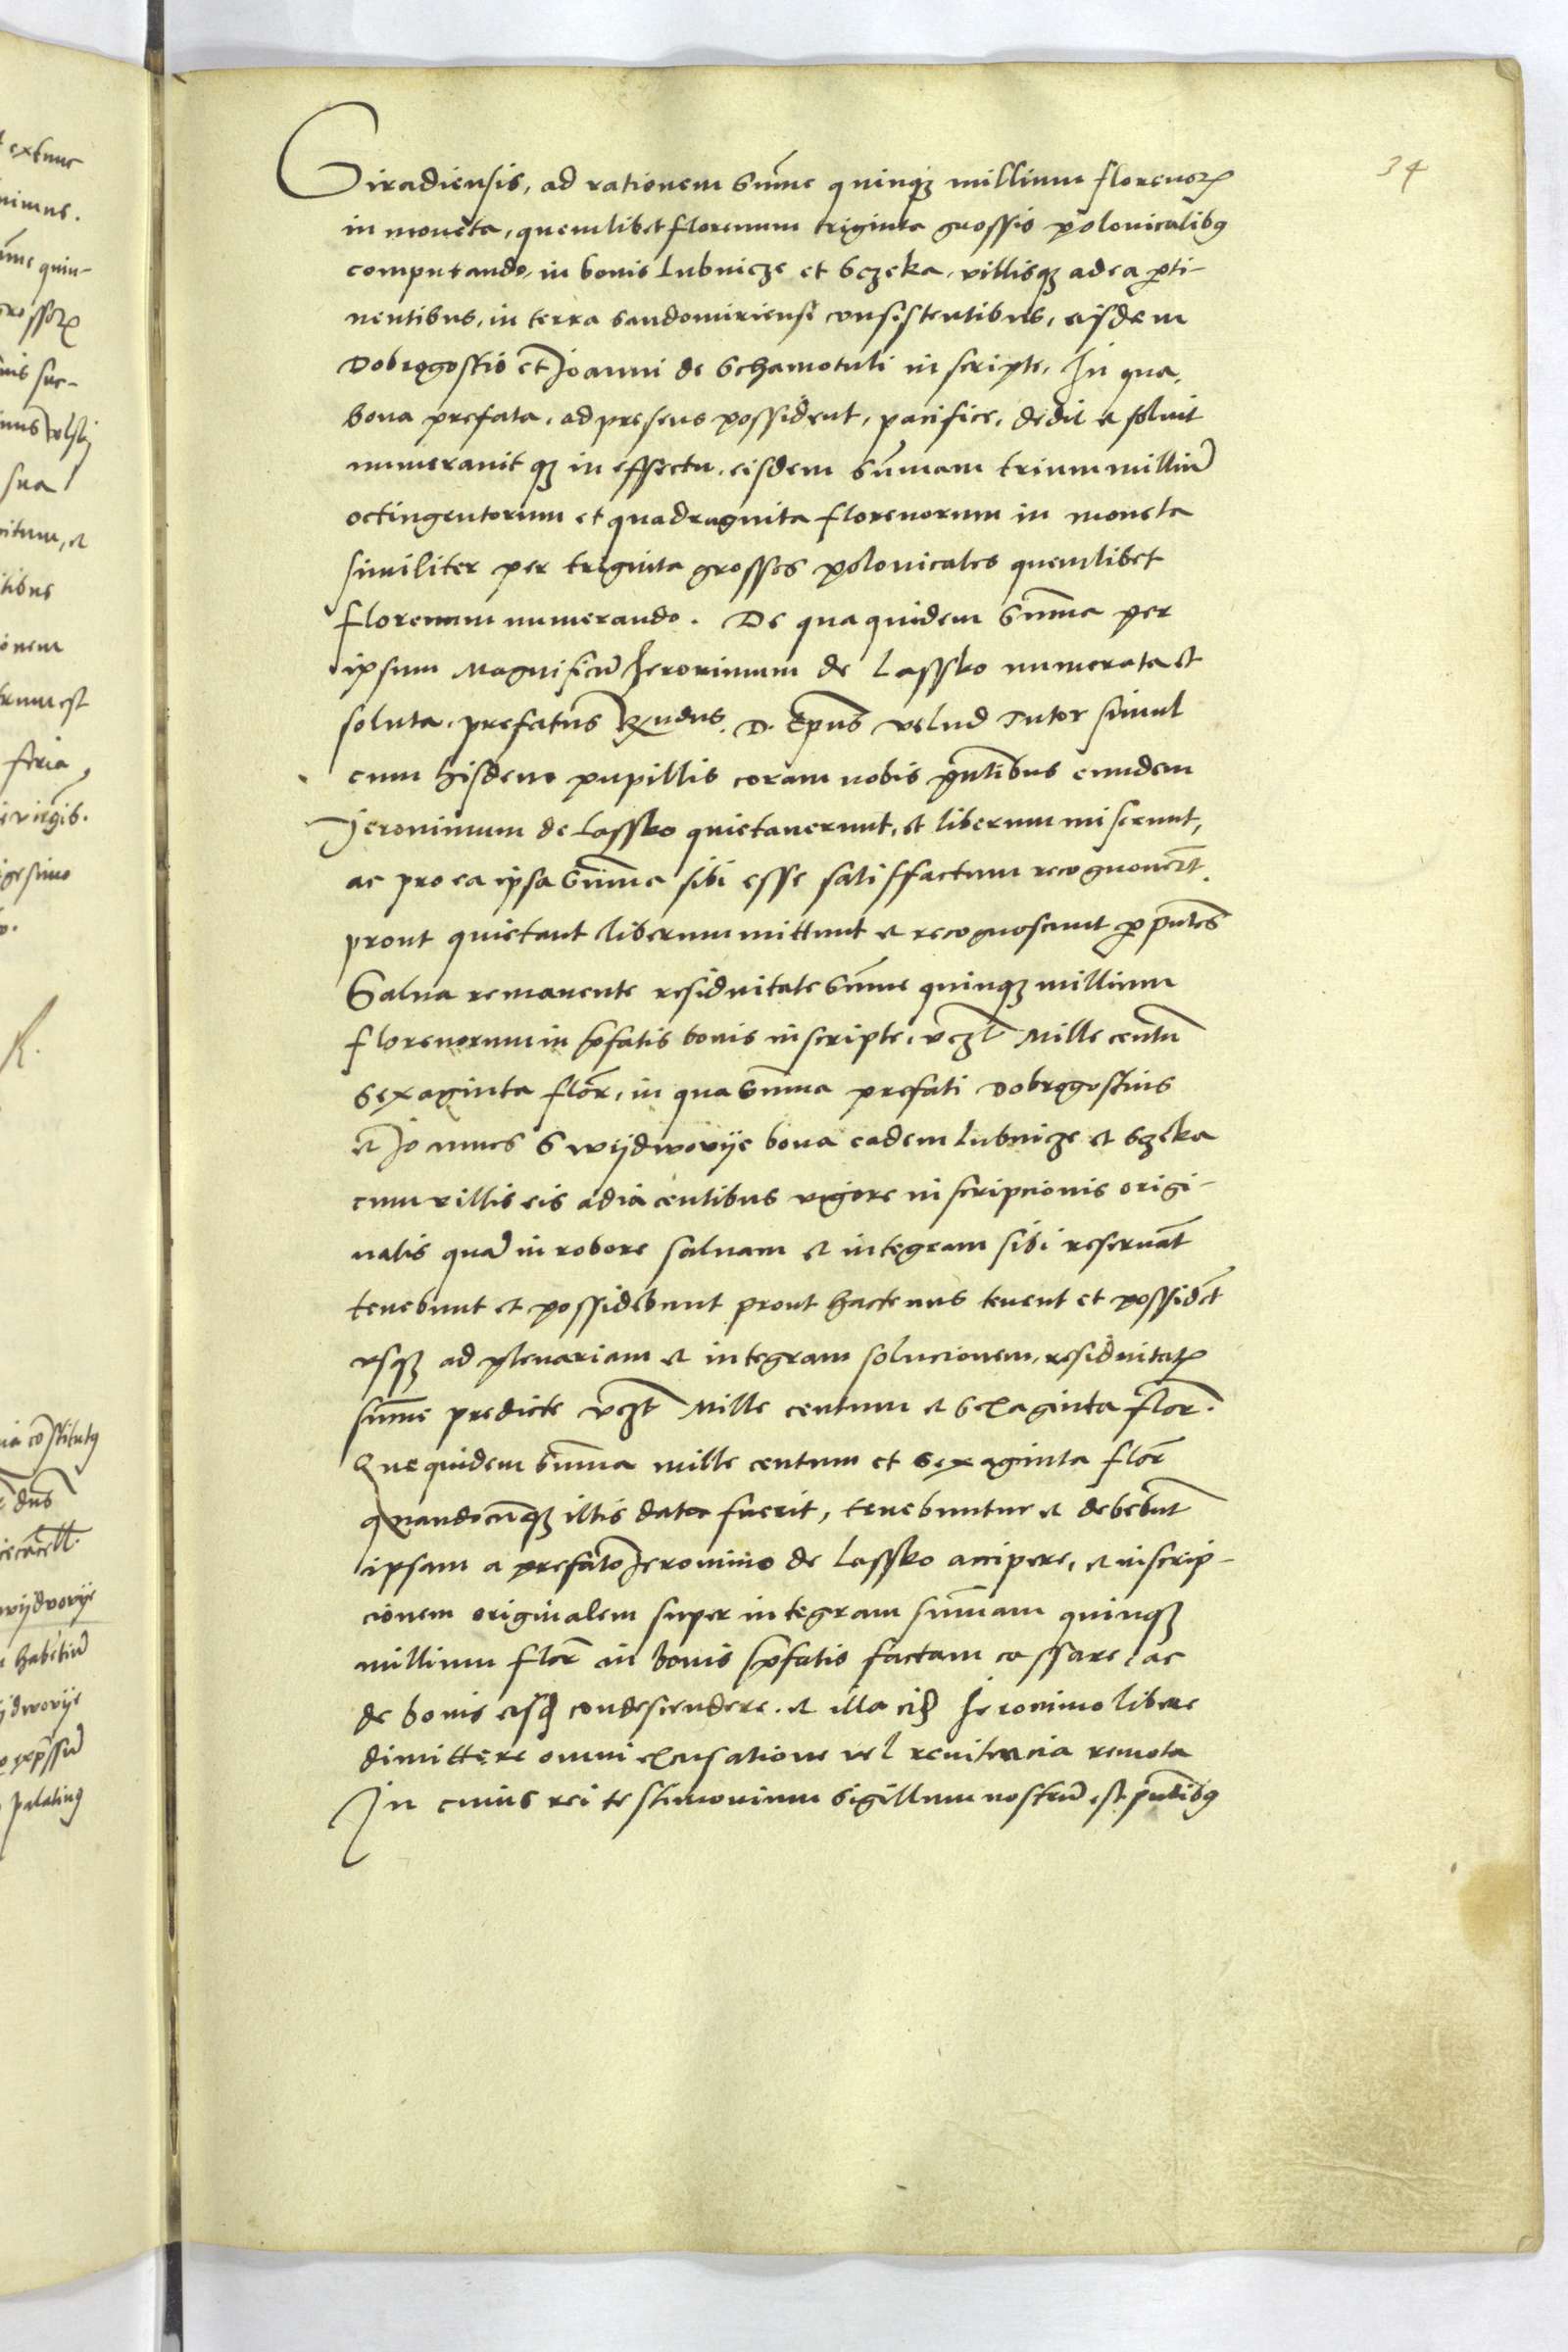 34
Siradiensis, ad rationem Sum̄e quinqȝ millium florenoꝝ
in moneta, quemlibet florenum triginta grossis polonicalibꝰ
computando, in bonis Lubnicze et Sczeka, villisqȝ ad ea ꝑti-
nentibus, in terra Sandomiriensi consistentibus, eisdem
Dobrogostio et Joanni de Schamotuli inscripte, In qua,
bona prefata, ad presens possident, pacifice, dedit et soluit
numerauit qȝ in effectu, eisdem Sum̄am trium milliū
octingentorum et quadraginta florenorum in moneta
similiter per triginta grosses polonicales quemlibet
florenum numerando. De qua quidem Sum̄a per
ipsum Magnificū Jeronimum de Lassko numerata et
soluta, prefatus Rn̄dus. D. Ep̄us velud Tutor simul
cum hisdem pupillis coram nobis pn̄tibus eundem
Jeronimum de Lassko quietauerunt, et liberum miserunt,
ac pro ea ipsa Sum̄a sibi esse satisffactum recognouer̄t.
prout quietant liberum mittunt et recognoscunt ꝑ pn̄tes
Salua remanente residuitate Sum̄e quinqȝ millium
florenorum in p̄fatis bonis inscripte, vcȝt Mille centū
Sexaginta flor̄, in qua Sum̄a prefati Dobrogostius
et Joannes Swydwoÿe bona eadem Lubnicze et Sczeka
cum villis eis adiacentibus vigore inscripcionis origi-
nalis quā in robore saluam et integram sibi reseruāt
tenebunt et possidebunt prout hactenus tenent et possidēt
vsqȝ ad plenariam et integram solucionem, residuitatꝭ
sum̄e predicte vcȝt Mille centum et Sexaginta flor̄.
Que quidem Sum̄a mille centum et Sexaginta flor̄
quandocūqȝ illis data fuerit, tenebuntur et debebūt
ipsam a prefato Jeronimo de Lassko accipere, et inscrip-
cionem originalem super integram sum̄am quinqȝ
millium flor̄ in bonis p̄fatis factam cassare, ac
de bonis eisd̄ condescendere, et illa eid̄ Jeronimo libere
dimittere omni excusatione vel renitencia remota
In cuius rei testimonium Sigillum nostrū est pn̄tibꝰ